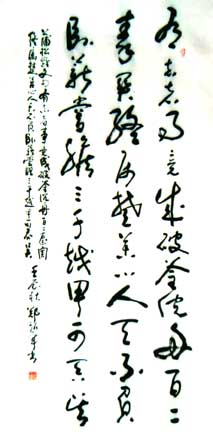 有志者事竟成破釜沉舟百二
秦关终属楚苦心人天不负
卧薪尝胆三千越甲可吞吴
蒲松龄文句有志者事竟成破釜沉舟百二秦关
终属楚苦心人天不负卧薪尝胆三千越甲可吞吴